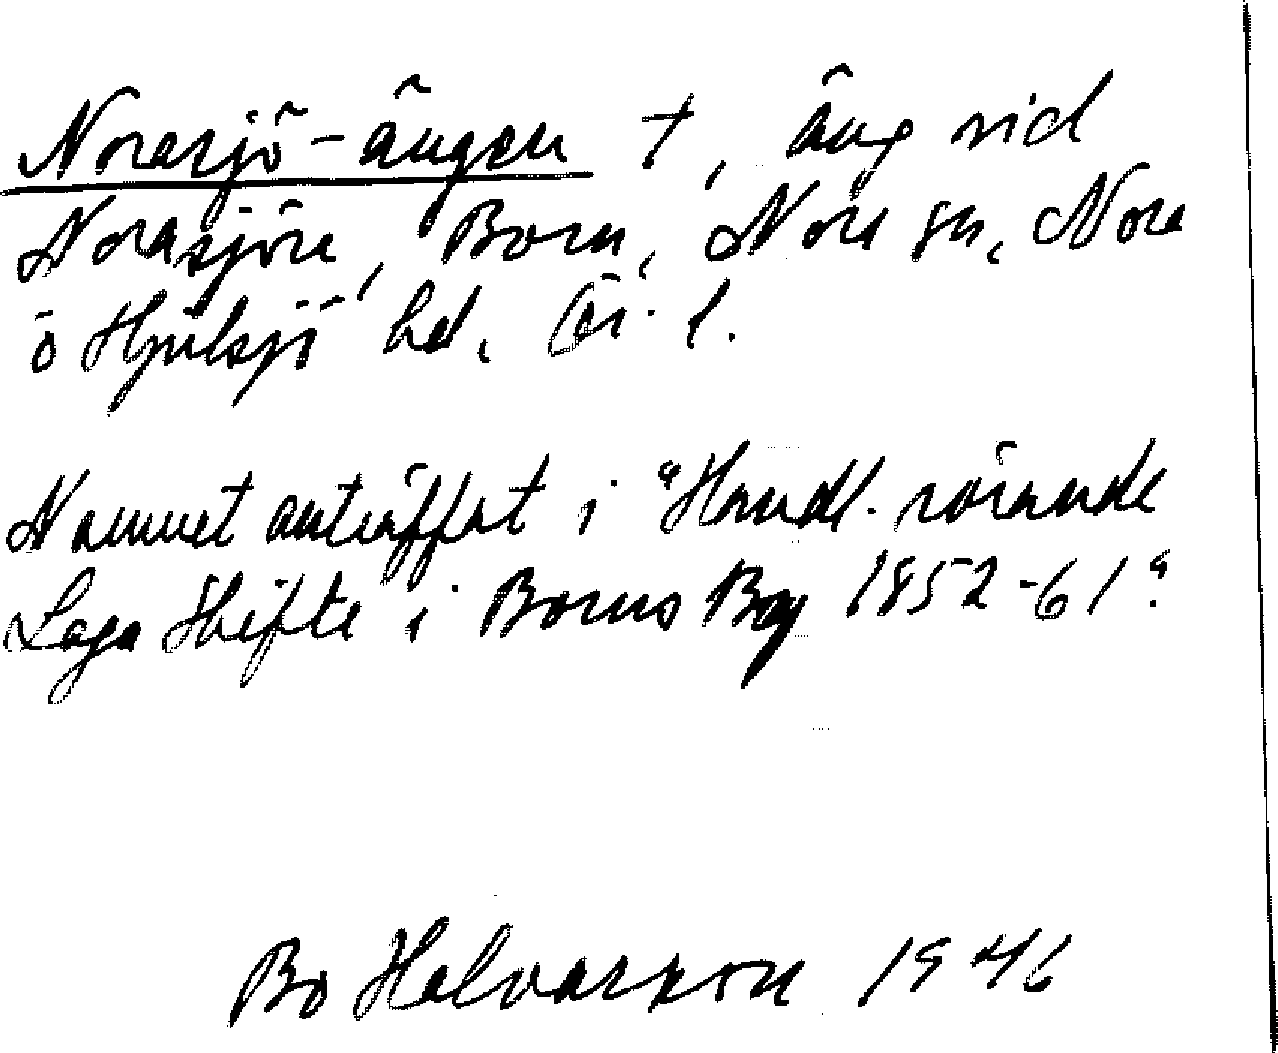 Norasjö-ängen †, äng vid
Norasjön, Born, Nora sn, Nora
o Hjulsjö hd, Ör. l.
Namnet anträffat i "Handl. rörande
Laga Skifte i Borns By 1852-61".
Bo Halvarson 1946